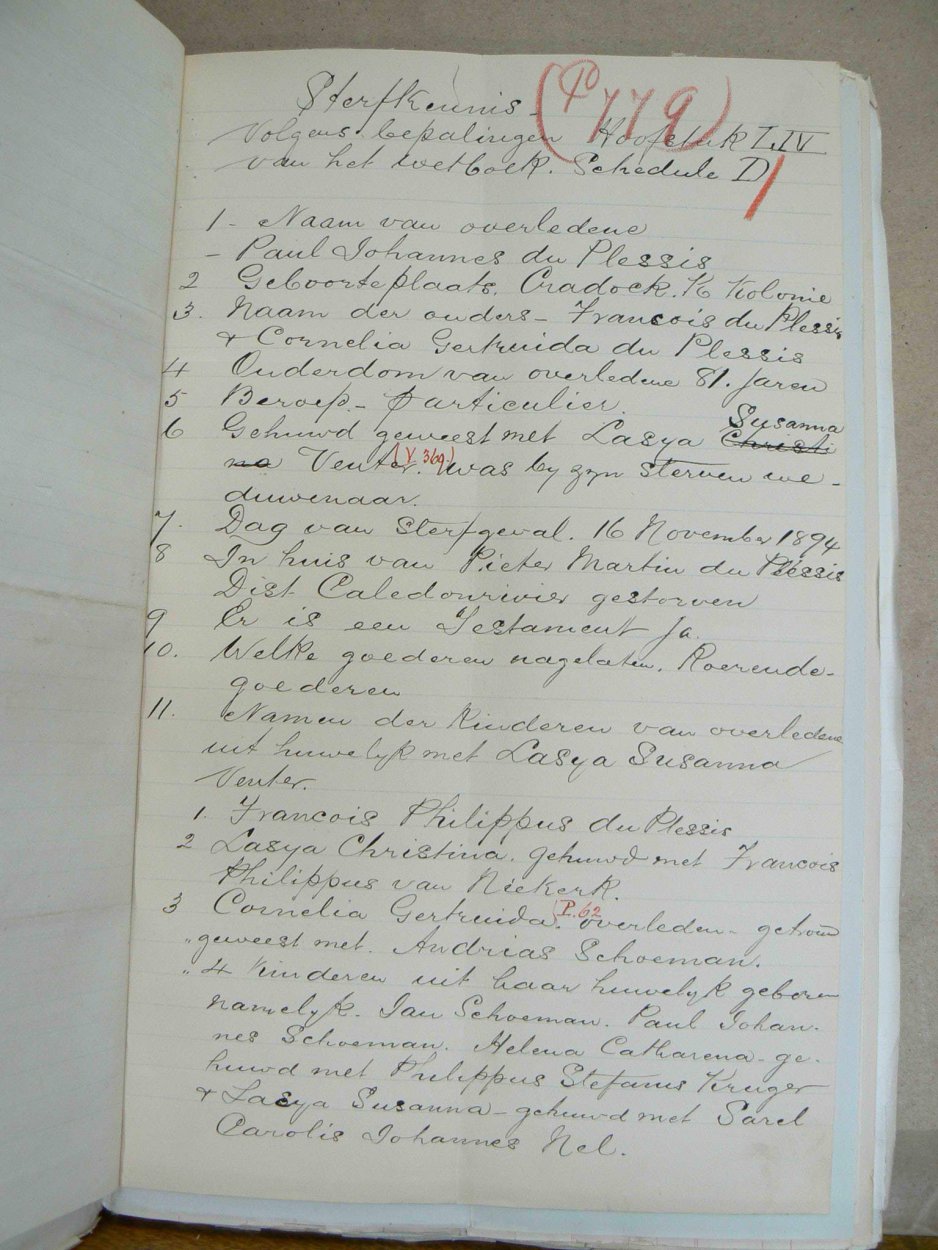 Sterfkennis
(P779)
Volgens bepalingen Hoofstuk LIV
van het wetboek. Schedule D
1 - Naam van overledene
- Paul Johannes du Plessis
2 Geboorteplaats. Cradock. K Kolonie
3. Naam der ouders - Francois du Plessis
& Cornelia Gertruida du Plessis
4 Ouderdom van overledene 81. Jaren
5 Beroep - Particulier.
6 Gehuwd geweest met Lasya Susanna Christi
na Venter. (V. 369.) was by zyn sterven we -
duwenaar.
7. Dag van Sterfgeval. 16 November 1894
8 In huis van Pieter Martin du Plessis
Dist Caledonrivier gestorven
9 Er is een Testament Ja.
10. Welke goederen nagelaten. Roerende-
goederen
11. Namen der Kinderen van overledene
uit huwelyk met Lasya Susanna
Venter.
1. Francois Philippus du Plessis
2 Lasya Christina. gehuwd met Francois
Philippus van Niekerk.
3 Cornelia Gertruida. (P. 62 overleden - getrouwd
" geweest met. Andrias Schoeman.
" 4 Kinderen uit haar huwelyk geboren
namelyk. Jan Schoeman. Paul Johan-
nes Schoeman. Helena Catharena - ge-
huwd met Philippus Stefanus Kruger
& Lasya Susanna - gehuwd met Sarel
Carolis Johannes Nel.